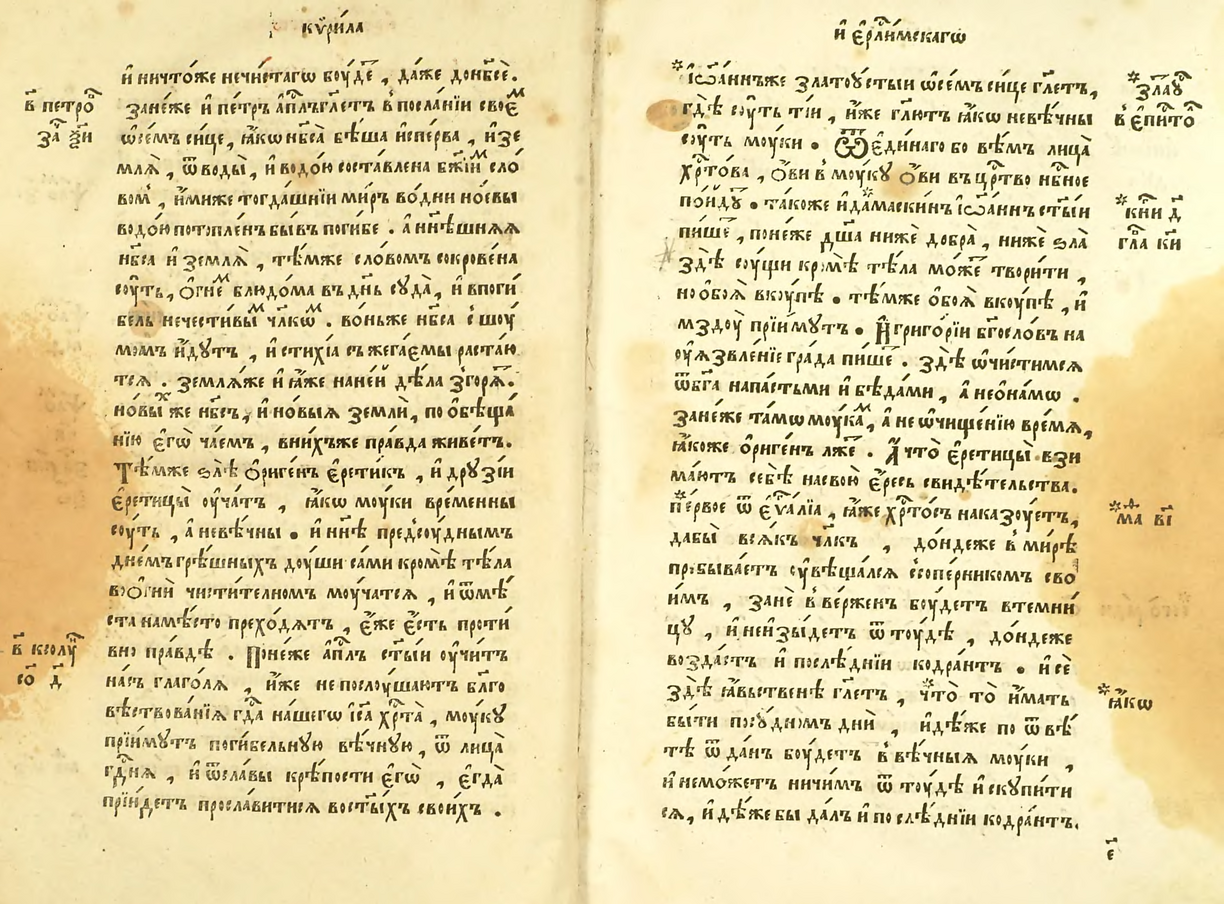 кѷри́ла
и҆ ничто́же нечи́стагѡ боу́де , да́же донб҃сѐ.
в҃ петро̑
зане́же и҆ пе́тръ а҆пⷭ҇лъ гл҃етъ в посла́нїи свое҆ⷨ
за҄ ѯ҃и
ѡ҆се́мъ си́це , ꙗ҆́кѡ нб҃са̀ бѣ́ша и҆спе́рва , и҆ зе
млѧ̀ , ѿ воды̀ , и҆ водо́ю соста́влена бж҃їиⷨ сло́
вомъ , и҆́миже тогда́шнїи ми́ръ во́дни но́евы
водо́ю пото́пленъ бы́въ поги́бе . а҆ ны́нѣшнѧѧ
нб҃са̀ и҆ землѧ̀ , тѣ́мже сло́вомъ сокрове́на
соу́ть , ѻ҆гне́ⷨ блюдо́ма въ дн҃ь сꙋда̀ , и҆ в поги́
бель нечести́выⷨ чл҃кѡⷨ . во́ньже нб҃са̀ с шоу́
момъ и҆́дꙋтъ , и҆ стихі́а съжега́емы раста́ю
тсѧ . землѧ́же и҆ ꙗ҆́же на не́й дѣла̀ згорѧ̀.
но́выⷯ же нб҃съ , и҆ но́выѧ землѝ , по ѻ҆бѣща́
нїю є҆гѡ̀ ча́емъ , в ни́хъже пра́вда живе́тъ.
Тѣ́мже ѕлѣ̀ ѻ҆риге́нъ є҆рети́къ , и҆ дрꙋзі́и
є҆рети́цы оу҆ча́тъ , ꙗ҆́кѡ моу́ки вре́менны
соу́ть , а҆ невѣ́чны . и҆ нн҃ѣ предсоу́днымъ
дне́мъ грѣ́шныхъ доу́ши са́ми кро́мѣ тѣ́ла
во ѻ҆гни̑ чисти́телномъ моу́чатсѧ , и҆ ѿ мѣ́
ста на мѣ́сто прехо́дѧтъ , є҆́же є҆́сть проти́
в҃ ксолꙋ̑
вно пра́вдѣ . Поне́же а҆пⷭ҇лъ ст҃ы́и оу҆чи́тъ
со̑ д҃
на́съ глаго́лѧ , и҆́же не послоу́шаютъ бл҃го
вѣ́ствованїѧ гдⷭ҇а на́шегѡ і҆с҃а хрⷭ҇та̀ , моу́кꙋ
прїи́мꙋтъ поги́белнꙋю вѣ́чнꙋю , ѿ лица̀
гдⷭ҇нѧ , и҆ ѿ сла́вы крѣ́пости є҆гѡ̀ , є҆гда̀
прїи́детъ просла́витисѧ во ст҃ы́хъ свои́хъ .
и҆ є҆рⷭ҇ли́мскагѡ
*І҆ѡа́ннъже златоу́стыи ѡ҆се́мъ си́це гл҃етъ,
* злаꙋ̑
гдѣ̀ соу́ть ті́и , и҆́же гл҃ютъ ꙗ҆́кѡ невѣ́чны
в҃ є҆пито̑
соу́ть моу́ки . Ѿ є҆ди́наго бо вѣ́мъ лица̀
хрⷭ҇то́ва , ѻ҆́ви в моу́кꙋ ѻ҆́ви въ црⷭ҇тво нб҃ное
по́йдꙋ . та́коже и҆ *дамаски́нъ і҆ѡа́ннъ ст҃ы́и
* кни̑ д҃
пи́ше , поне́же дш҃а нижѐ добра̀ , нижѐ ѕла̀
гла̑ к҃и
здѣ̀ соу́щи кро́мѣ тѣ́ла мо́же твори́ти ,
но ѻ҆боѧ̀ вкоу́пѣ . тѣ́мже ѻ҆боѧ̀ вкоу́пѣ , и҆
мздоу̀ прїи́мꙋтъ . И҆ григо́рїи бг҃осло́въ на
оу҆ѧзвле́нїе гра́да пи́ше . здѣ̀ ѡ҆чи́стимсѧ
ѿ бг҃а напа́стьми и҆ бѣ́дами , а҆ не ѻ҆на́мѡ .
зане́же та́мѡ моу́каⷨ , а҆ не ѡ҆чище́нїю вре́мѧ,
ꙗ҆́коже ѻ҆риге́нъ лжѐ . А҆ что̀ є҆рети́цы взи
ма́ютъ себѣ̀ на свою̀ є҆́ресь свидѣ́тельства.
*пе́рвое ѿ є҆ѵⷢ҇а́лїа , ꙗ҆́же хрⷭ҇то́съ наказоу́етъ,
* ма҄ в҃і
дабы̀ всѧ́къ чл҃къ , до́ндеже в ми́рѣ
пребыва́етъ оу҆вѣща́лсѧ с сопе́рникомъ сво
и́мъ , занѐ вве́рженъ боу́детъ в темни́
цꙋ , и҆ неизы́детъ ѿ тоу́дѣ , до́ндеже
возда́стъ и҆ послѣ́днїи кодра́нтъ . и҆ сѐ
здѣ̀ ꙗ҆́вьственѣ гл҃етъ , *что̀ то̀ и҆́мать
* ꙗ҆́кѡ
бы́ти по сꙋ́дномъ дни̑ , и҆дѣ́же по ѿвѣ́
тѣ ѿда́нъ боу́детъ в вѣ́чныѧ моу́ки ,
и҆ немо́жетъ ничи́мъ ѿ тоу́дѣ и҆скꙋпи́ти
сѧ, и҆ дѣ́же бы да́лъ и҆ послѣ́днїи кодра́нтъ.
є҃